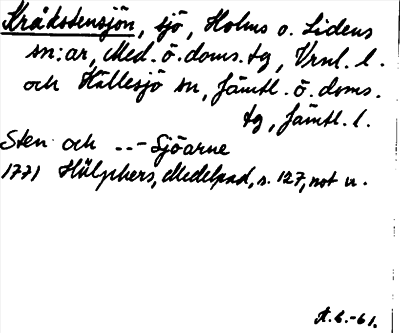 Kråkstensjön, sjö, Holms o. Lidens
sn:ar, Med. ö. doms. tg, Vrnl. l.
och Hällesjö sn, Jämtl. ö. doms.
tg, Jämtl. l.
Sten och ..-Sjöarne
1771 Hülphers, Medelpad, s. 127, not u.
A.L.-61.